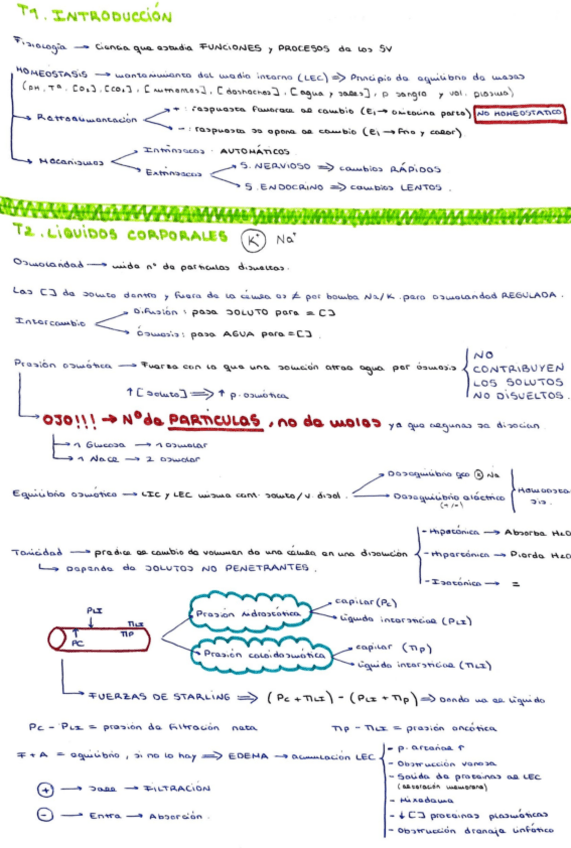 T1. INTRODUCCIÓN
Fisiología → Ciencia que estudia FUNCIONES y PROCESOS de los SV
HOMEOSTASIS → mantenimiento del medio interno (LEC) ⇒ Principio de equilibrio de masas
(pH, Tª, [O₂], [CO₂], [nutrientes], [deshechos], [agua y sales], p sangre y vol. plasma)
→ Retroalimentación
+ : respuesta favorece el cambio (Ej → oxitocina parto) NO HOMEOSTATICO
- : respuesta se opone al cambio (Ej → frio y calor).
→ Mecanismos
Intrínsecos : AUTOMÁTICOS.
Extrínsecos
S. NERVIOSO ⇒ cambios RÁPIDOS
S. ENDOCRINO ⇒ cambios LENTOS.
T2. LÍQUIDOS CORPORALES K⁺ Na⁺
Osmolaridad → mide nº de partículas disueltas.
Las [] de soluto dentro y fuera de la célula es ≠ por bomba Na/K para osmolaridad REGULADA.
Intercambio
Difusión : pasa SOLUTO para = []
Ósmosis : pasa AGUA para = [].
Presión osmótica → Fuerza con la que una solución atrae agua por ósmosis
NO
CONTRIBUYEN
LOS SOLUTOS
NO DISUELTOS.
↑ [soluto] ⇒ ↑ p. osmótica
OJO!!! → Nº de PARTÍCULAS, no de moles ya que algunas se disocian.
→ 1 Glucosa → 1 osmolar
→ 1 NaCl → 2 osmolar
Equilibrio osmótico → LIC y LEC misma cant. soluto/v. disol.
Desequilibrio qco K Na
Desequilibrio eléctrico
(+/-)
Homeosta
sis.
Tonicidad → predice el cambio de volumen de una célula en una disolución
→ Depende de SOLUTOS NO PENETRANTES.
- Hipotónica → Absorbe H₂O
- Hipertónica → Pierde H₂O
- Isotónica → =
PLI
PC
πLI
πp
Presión hidrostática
capilar (Pc)
líquido intersticial (PLI)
Presión coloidosmótica
capilar (πp)
líquido intersticial (πLI)
→ FUERZAS DE STARLING ⇒ (Pc + πLI) - (PLI + πp) ⇒ Donde va el líquido
Pc - PLI = presión de filtración neta
πp - πLI = presión oncótica
F + A = equilibrio, si no lo hay ⇒ EDEMA → acumulación LEC
- p. arterial ↑
- Obstrucción venosa
- Salida de proteínas al LEC
(alteración membrana)
- Mixedema
- ↓ [] proteínas plasmáticas
- Obstrucción drenaje linfático
+ → Sale → FILTRACIÓN
- → Entra → Absorción.